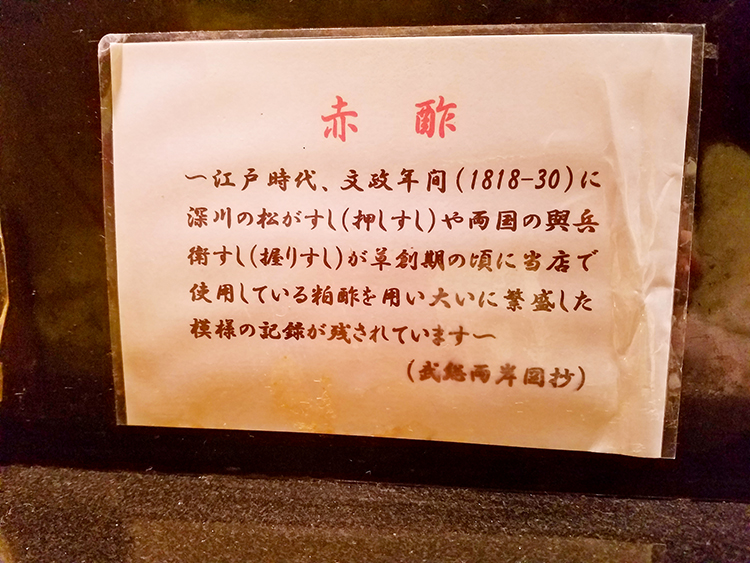 赤 酢
ー江戸時代、文政年间(1818-30)に
深川の松がすし(押しすし)や両国の與兵
衛すし(握りすし)が草創期の頃に当店で
使用している粕酢を用い大いに繁盛した
模様の記録が残されていますー
(武総両岸図抄)